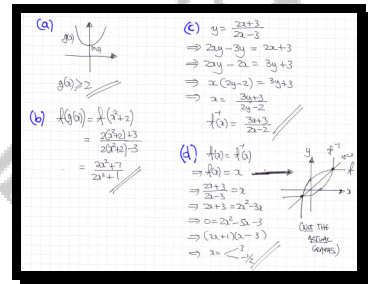 (a)
g(x)
(0,2)
g(x) ⩾ 2
(b) f(g(x)) = f(x²+2)
= 2(x²+2)+3 / 2(x²+2)-3
= 2x²+7 / 2x²+1
(c) y = 2x+3 / 2x-3
⇒ 2xy - 3y = 2x+3
⇒ 2xy - 2x = 3y+3
⇒ x(2y-2) = 3y+3
⇒ x = 3y+3 / 2y-2
f⁻¹(x) = 3x+3 / 2x-2
(d) f(x) = f⁻¹(x)
⇒ f(x) = x
⇒ 2x+3 / 2x-3 = x
⇒ 2x+3 = 2x²-3x
⇒ 0 = 2x²-5x-3
⇒ (2x+1)(x-3)
⇒ x = < 3 -½
y
f⁻¹
y=x
f
x
(NOT THE
ACTUAL
GRAPHS)